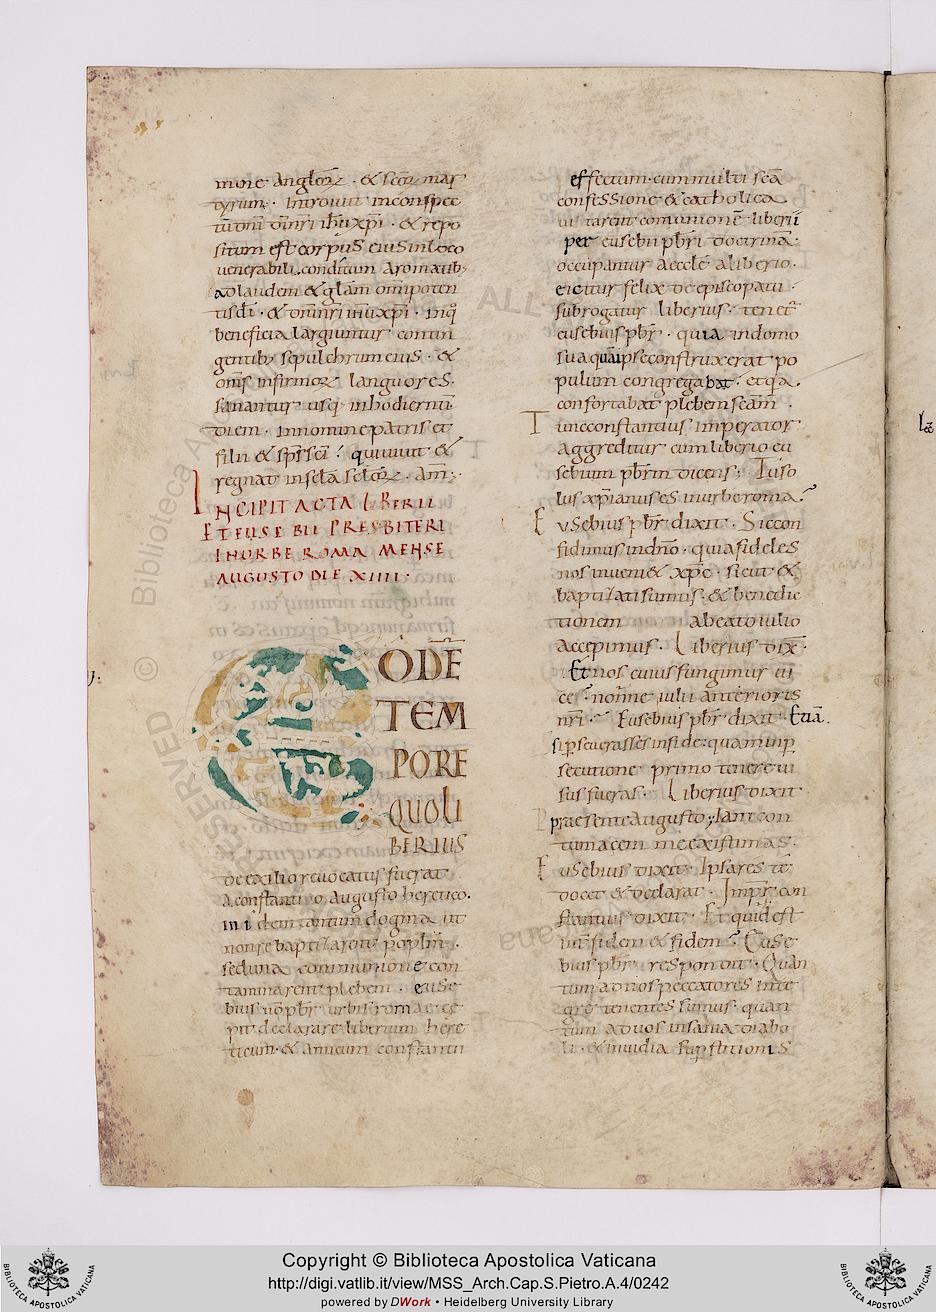 mine angłorꝝ · & scōꝝ mar
tyrum · Introiuit inconspec
tū dnī dī nr̄i ihū xpī · & repo
situm est corpus eius inloco
uenerabili · conditum aromatib;
ad laudem & glam̄ omīpoten
tis dī · & dnī nr̄i ihū xpī · inq̊
beneficia largiuntur conuin
gentib; sepulchrum eius · &
om̄s infirmoꝝ languores ·
sanantur usq; inhodiernū
diem · Innomine patris et
filii & sp̄s sc̄i · qui uiuit &
regnat insc̄la sc̄loꝝ · am̄ ·
INCIPIT ACTA LIBERII
ET EUSEBII PRESBITERI
IN URBE ROMA MENSE
AUGUSTO DIE XIIII ·
EODĒ
TEM
PORE
QUO LI
BERIUS
de exilio reuocatus fuerat
a constantio augusto heretico ·
in idem tantum dogma ut
non rebaptizarent popłm̄ ·
sed una communione con
taminarent plebem · euse
bius uō pbr̄ urbis romae ce
pit declarare liberium here
ticum · & amicum constantii
effectum · cum multi scā
confessione & catholica ·
uitarent comunionē liberii
per eusebii pbr̄i doctrinā ·
occupantur aecclē a liberio ·
eicitur felix de episcopatu ·
subrogatur liberius · tenet̄
eusebius pbr̄ · quia indomo
sua quā ipse construxerat po
pulum congregabat · et qa ·
confortabat plebem scām̄ ·
Tunc constantius imperator
aggreditur cum liberio eu
sebium pbr̄m dicens ; Tu so
lus xp̄ianus es in urbe roma ?
Eusebius pbr̄ dixit · Sic con
fidimus in dn̄o · quia fideles
nos inueni& xpc̄ · sicut &
baptizati sumus · & benedic
tionem a beato iulio
accepimus · Liberius dix̄ ·
Et nos cuius fungimur ui
ce ? nonne iulii anterioris
nr̄i ? Eusebius pbr̄ dixit · Etiā ·
si perseuerasses inside : quam inp
secutione primo tenere ui
sus fueras · Liberius dixit
praesente augusto ; Iam con
tumacem me existimas ·
Eusebius dixit · Ipsa res te
docet & declarat · Imp̄r con
stantius dixit · Et quid est
int̄ fidem & fidem ? Euse
bius pbr̄ respondit · Quan
tum ad nos peccatores inte
gre tenentes sumus · quan
tum ad uos insania diabo
li · & inuidia suꝑstitionis
ij.
Copyright © Biblioteca Apostolica Vaticana
http://digi.vatlib.it/view/MSS_Arch.Cap.S.Pietro.A.4/0242
powered by DWork • Heidelberg University Library
BIBLIOTECA APOSTOLICA VATICANA
BIBLIOTECA APOSTOLICA VATICANA